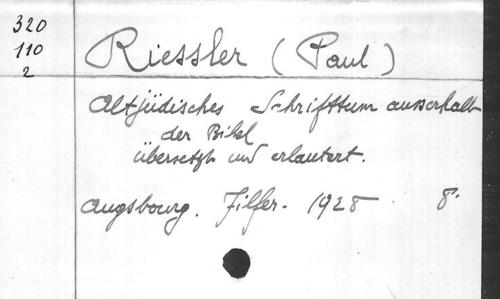 320
110
2
Riessler (Paul)
Altjüdisches Schrifttum ausserhalb
der Bibel
übersetzt und erlautert.
Augsbourg. Filser. 1928 8°